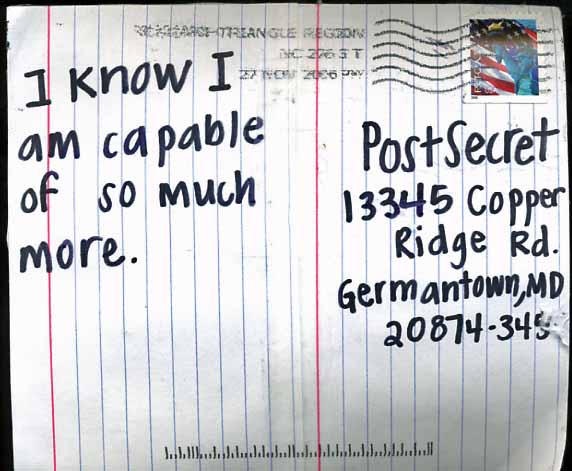 RESEARCH TRIANGLE REGION
NC 276 3 T
27 NOV 2006 PM
I know I
am capable
of so much
more.
PostSecret
13345 Copper
Ridge Rd.
Germantown, MD
20874-345